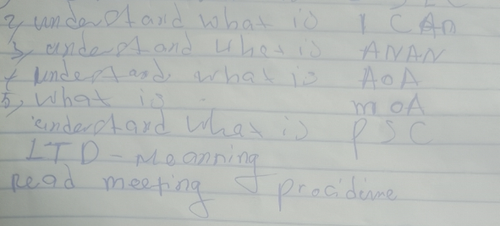 2, understand what is I CAN
3, understand what is ANAN
4 understand what is AOA
5, what is MOA
understand what is PSC
LTD - Meanning
Read meeting procidime